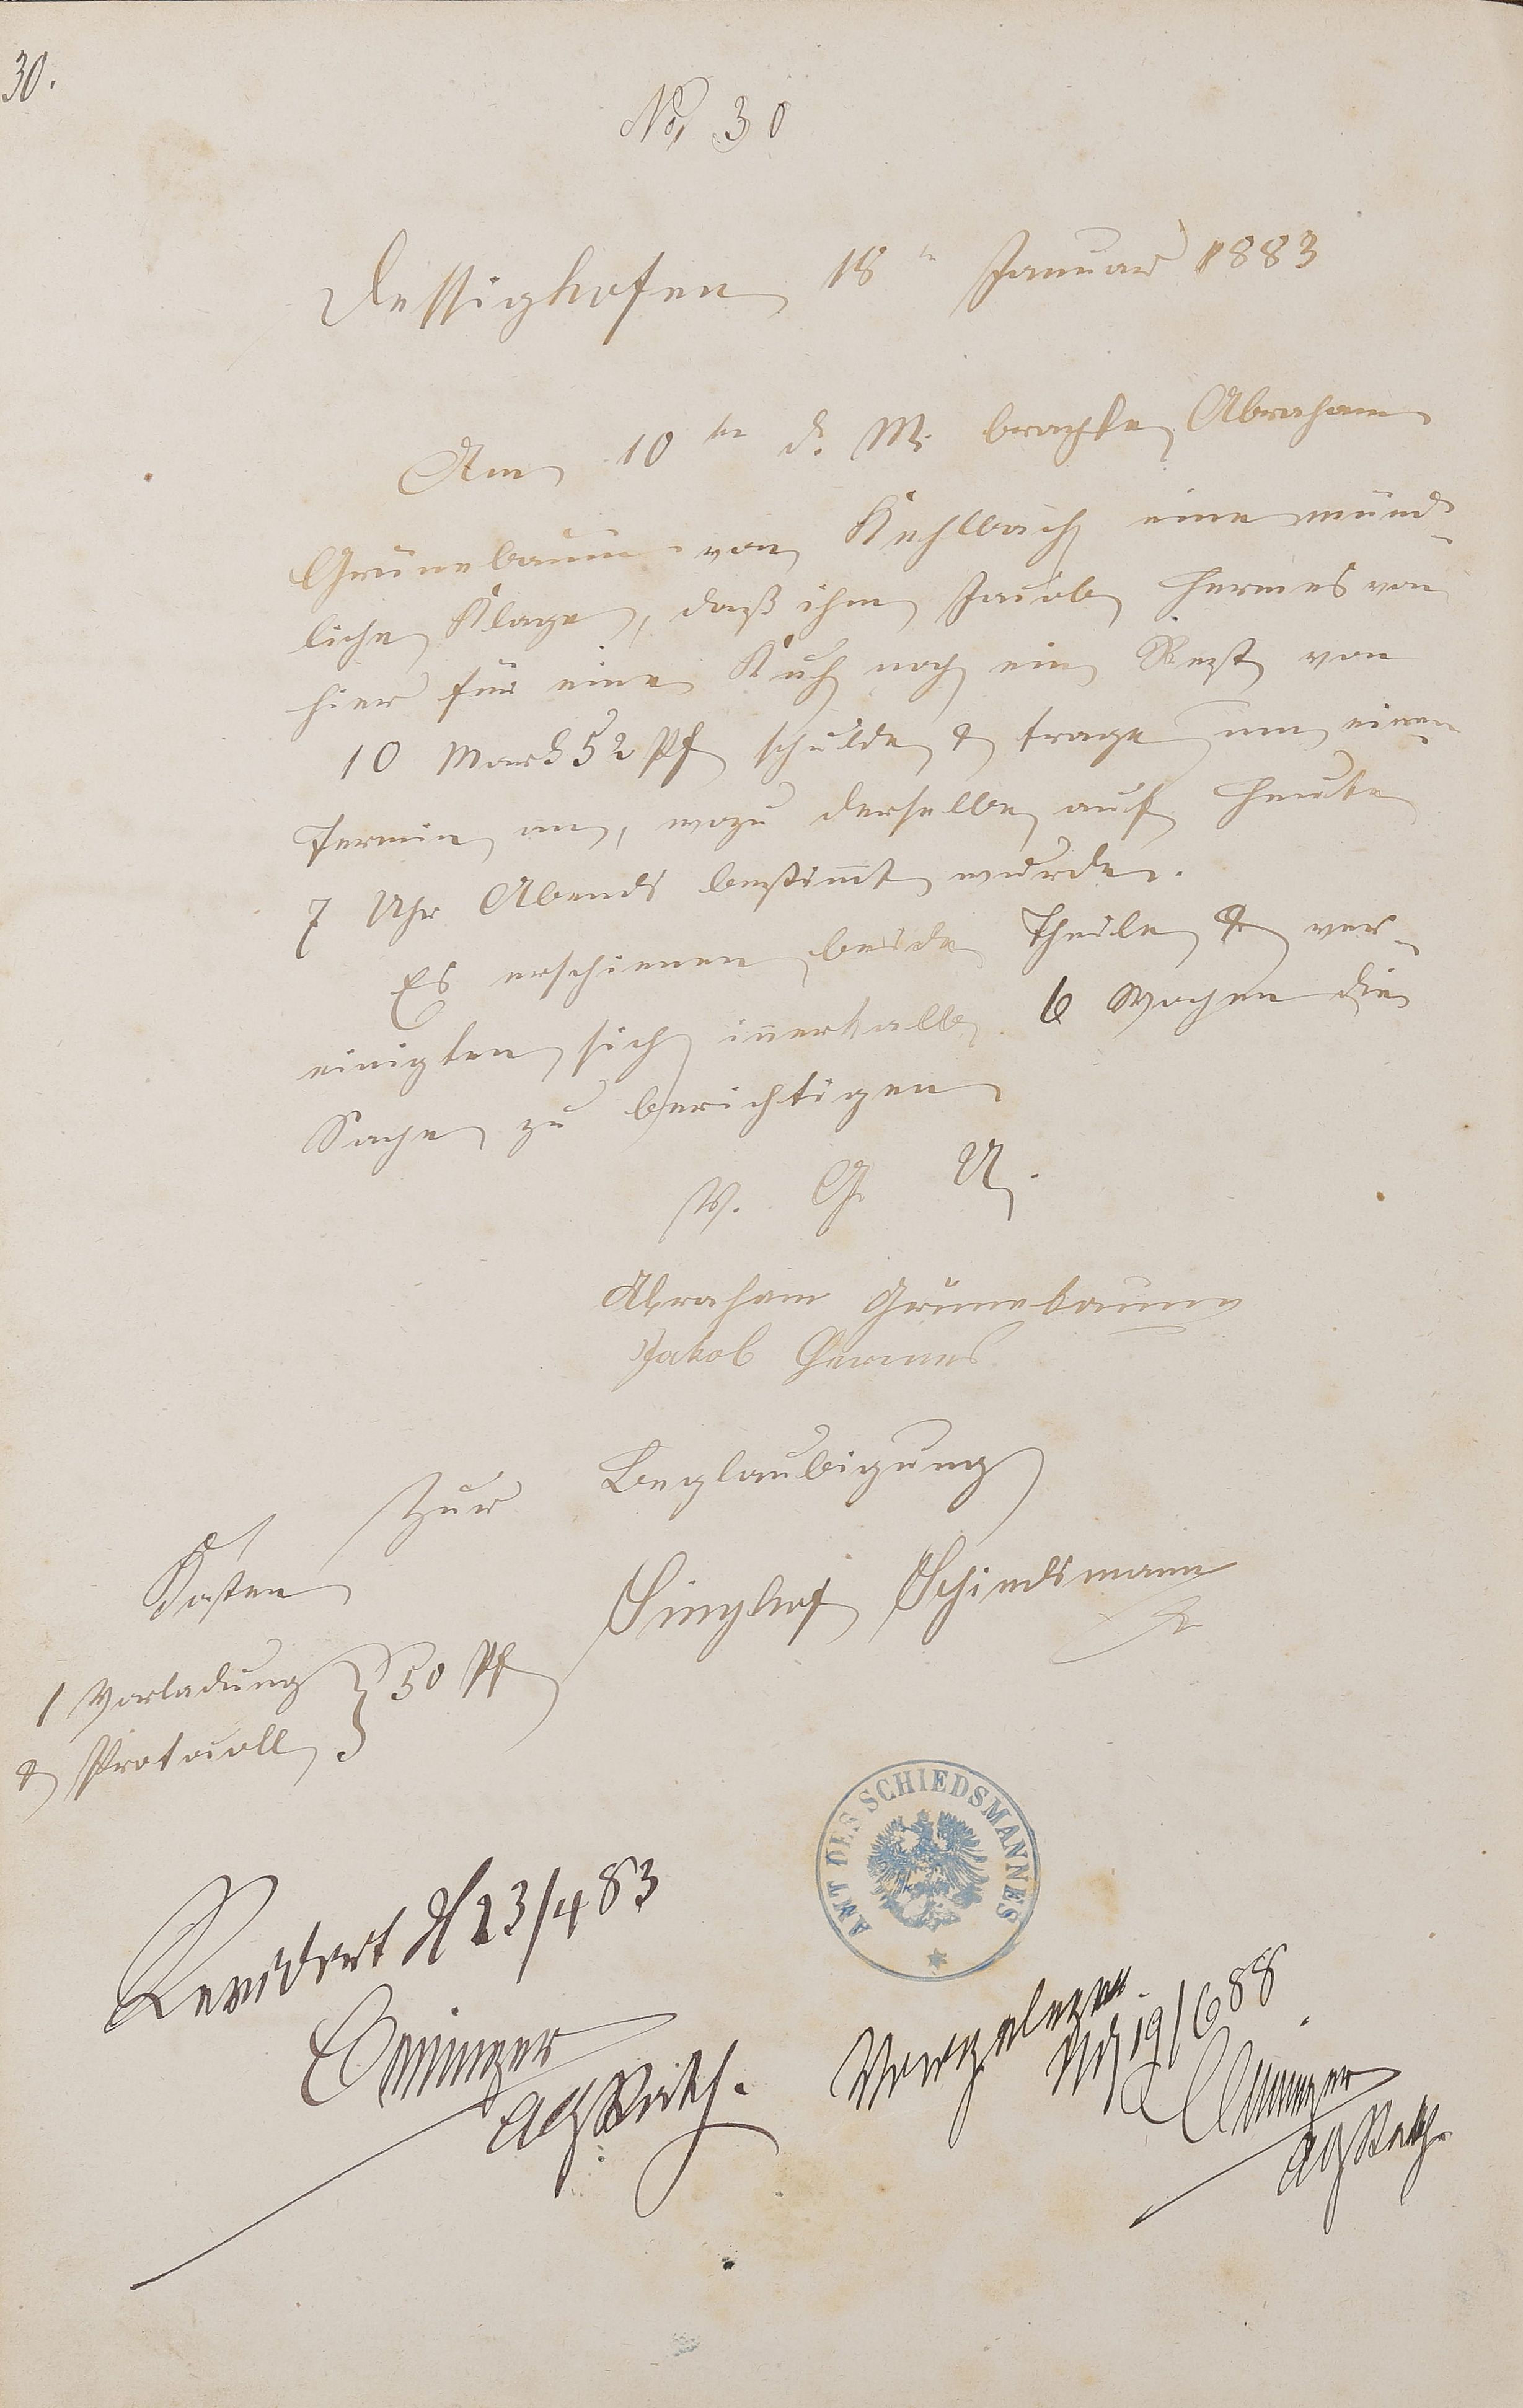 30.
No, 30
Dessighofen 18ten Januar 1883
Am 10ten d. M. brachte Abraham
Grünebaum von Kehlbach eine münd-
liche Klage, daß ihm Jacob Hermes von
hier für eine Kuh noch ein Rest von
10 Mark 52 Pf schulde & trage um einen
Termin an, wozu derselbe auf Heute
7 Uhr Abends bestimmt wurde.
Es erschienen beide Theile & ver-
einigten sich innerhalb 6 Wochen die
Sache zu berichtigen
V. G. U.
Abraham Grünebaum
Jakob Hermes
Zur Beglaubigung
Kosten
Singhof Schiedsmann
1 Vorladung } 50 Pf
& Protocoll
AMT DES SCHIEDSMANNES
Revidirt d 23/4 83
AGRath.
Vorgelegen
19/6 88
AGRath